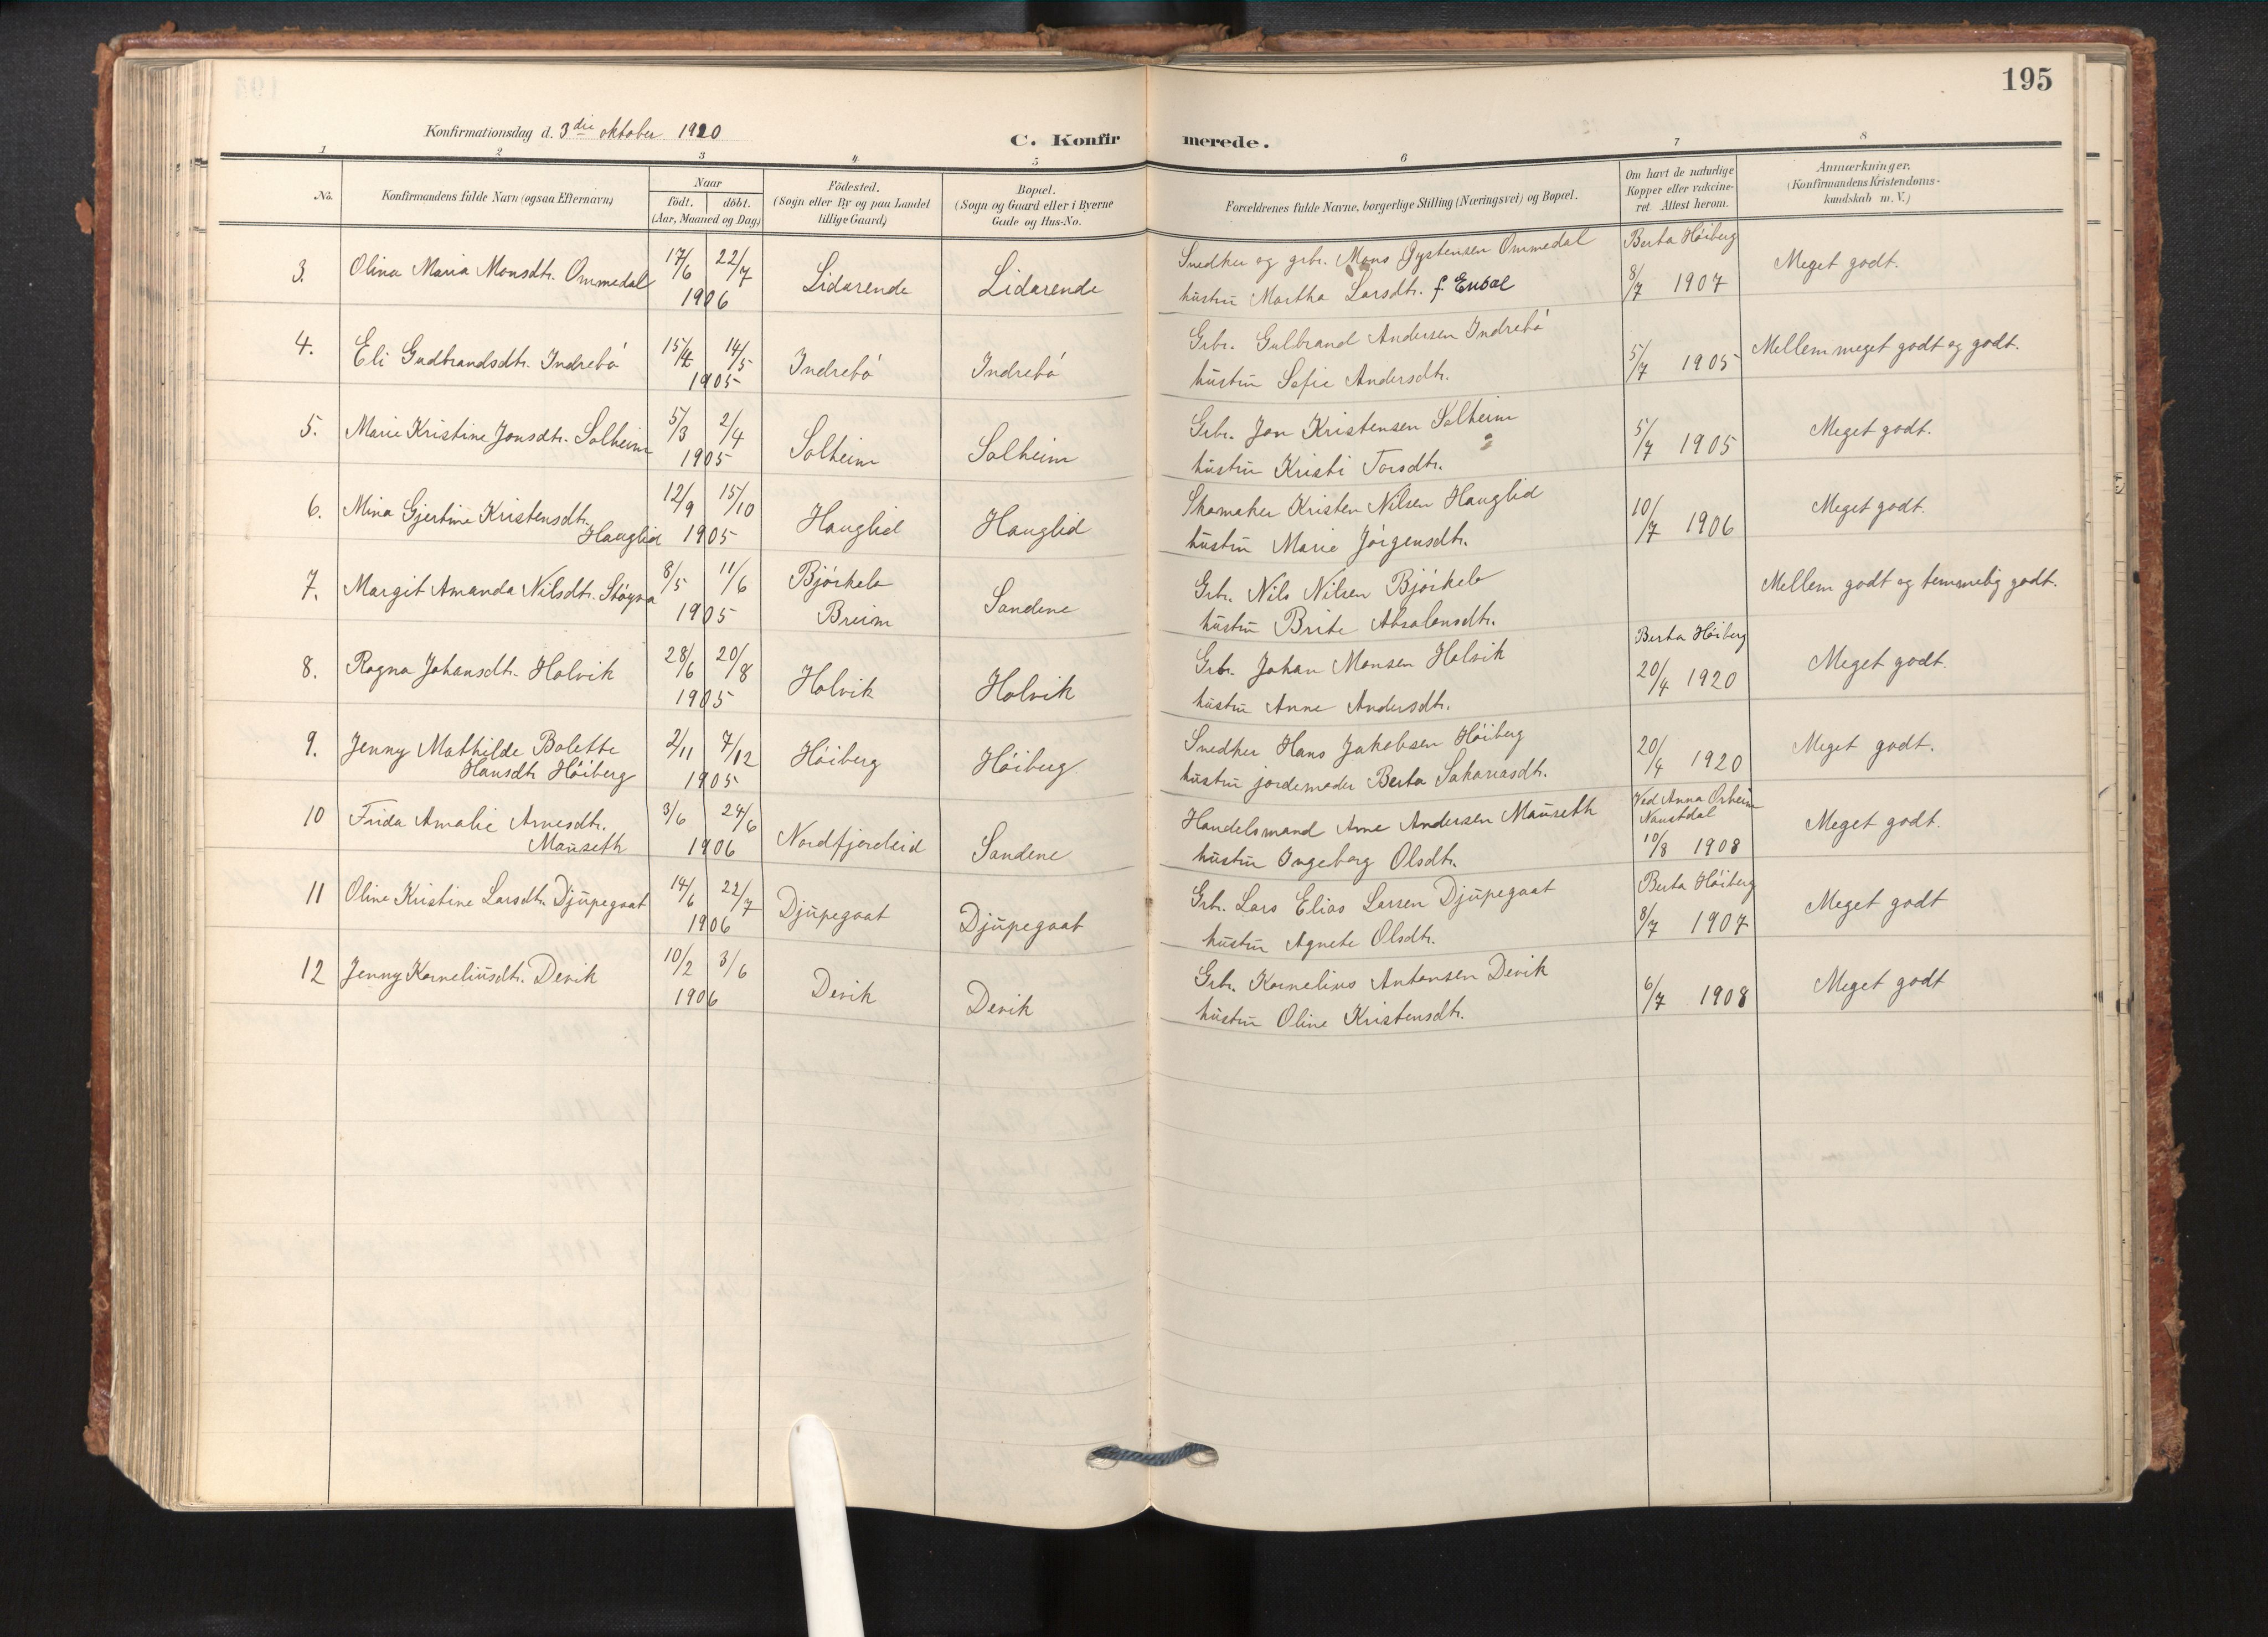 195
Konfirmationsdag d. 3die oktober 1920
C. Konfirmerede.
1 2 3 4 5 6 7 8
No.
Konfirmandens fulde Navn (ogsaa Efternavn)
Naar
födt. döbt.
(Aar, Maaned og Dag)
Födested.
(Sogn eller By og paa Landet
tillige Gaard)
Bopæl.
(Sogn og Gaard eller i Byerne
Gade og Hus-No.
Forældrenes fulde Navne, borgerlige Stilling (Næringsvei) og Bopæl.
Om havt de naturlige
Kopper eller vakcine-
ret Attest herom.
Anmærkninger.
(Konfirmandens Kristendoms-
kundskab m. V.)
3. Olina Maria Monsdtr. Ommedal 17/6 22/7 1906 Lidarende Lidarende
Snedker og grbr. Mons Øystensen Ommedal
hustru Martha Larsdtr.
Berta Höiberg
8/7 1907
Meget godt.
4. Eli Gudbrandsdtr. Indrebö 15/4 14/5 1905 Indrebö Indrebö
Grbr. Gulbrand Andersen Indrebö
hustru Sofie Andersdtr.
5/7 1905
Mellem meget godt og godt.
5. Marie Kristine Jonsdtr. Solheim 5/3 2/4 1905 Solheim Solheim
Grbr. Jon Kristensen Solheim
hustru Kristi Torsdtr.
5/7 1905
Meget godt.
6. Mina Gjertine Kristensdtr.
Hauglid 12/9 15/10 1905 Hauglid Hauglid
Skomaker Kristen Nilsen Hauglid
hustru Marie Jörgensdtr.
10/7 1906
Meget godt.
7. Margit Amanda Nilsdtr. Støyva 8/5 11/6 1905
Björkelo
Breim
Sandene
Grbr. Nils Nilsen Björkelo
hustru Brite Absalonsdtr.
Mellem godt og temmelig godt.
8. Ragna Johansdtr. Holvik 28/6 20/8 1905 Holvik Holvik
Grbr. Johan Monsen Holvik
hustru Anne Andersdtr.
Berta Höiberg
20/4 1920
Meget godt.
9. Jenny Mathilde Bolette
Hansdtr Höiberg 2/11 7/12 1905 Höiberg Höiberg
Snedker Hans Jakobsen Höiberg
hustru jordemoder Berta Sakariasdtr.
20/4 1920
Meget godt.
10 Frida Amalie Arnesdtr.
Mauseth 3/6 24/6 1906 Nordfjordeid Sandene
Handelsmand Arne Andersen Mauseth
hustru Ingeborg Olsdtr.
Ved Anna Orheim
Naustdal
10/8 1908
Meget godt.
11 Oline Kristine Larsdtr. Djupegaat 14/6 22/7 1906 Djupegaat Djupegaat
Grbr. Lars Elias Larsen Djupegaat
hustru Agnete Olsdtr.
Berta Höiberg
8/7 1907
Meget godt
12 Jenny Korneliusdtr. Devik 10/2 3/6 1906 Devik Devik
Grbr. Kornelius Antonsen Devik
hustru Oline Kristensdtr.
6/7 1908
Meget godt